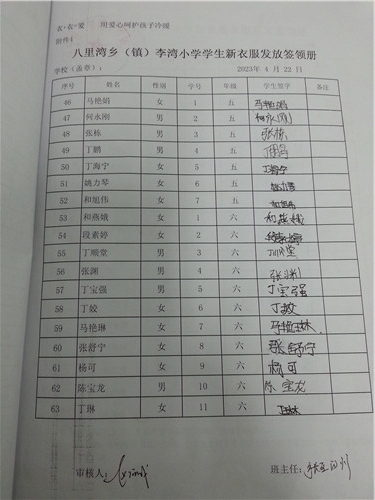 衣+衣+爱 用爱心呵护孩子冷暖
附件4
八里湾乡（镇）李湾小学学生新衣服发放签领册
学校（盖章）： 2023年 4 月 22 日
序号 姓名 性别 学号 年级 学生签字 备注
46 马艳娟 女 1 五 马艳娟
47 何永刚 男 2 五 何永刚
48 张栋 男 3 五 张栋
49 丁鹏 男 4 五 丁鹏
50 丁海宁 女 5 五 丁海宁
51 姚力琴 女 6 五
52 和旭伟 女 7 五
53 和燕娥 女 1 六 和燕娥
54 段素婷 女 2 六 段素婷
55 丁顺堂 男 3 六 丁顺堂
56 张渊 男 4 六 张渊
57 丁宝强 男 5 六 丁宝强
58 丁姣 女 6 六 丁姣
59 马艳琳 女 7 六 马艳琳
60 张舒宁 女 8 六 张舒宁
61 杨可 女 9 六 杨可
62 陈宝龙 男 10 六 陈宝龙
63 丁琳 女 11 六 丁琳
审核人： 班主任：